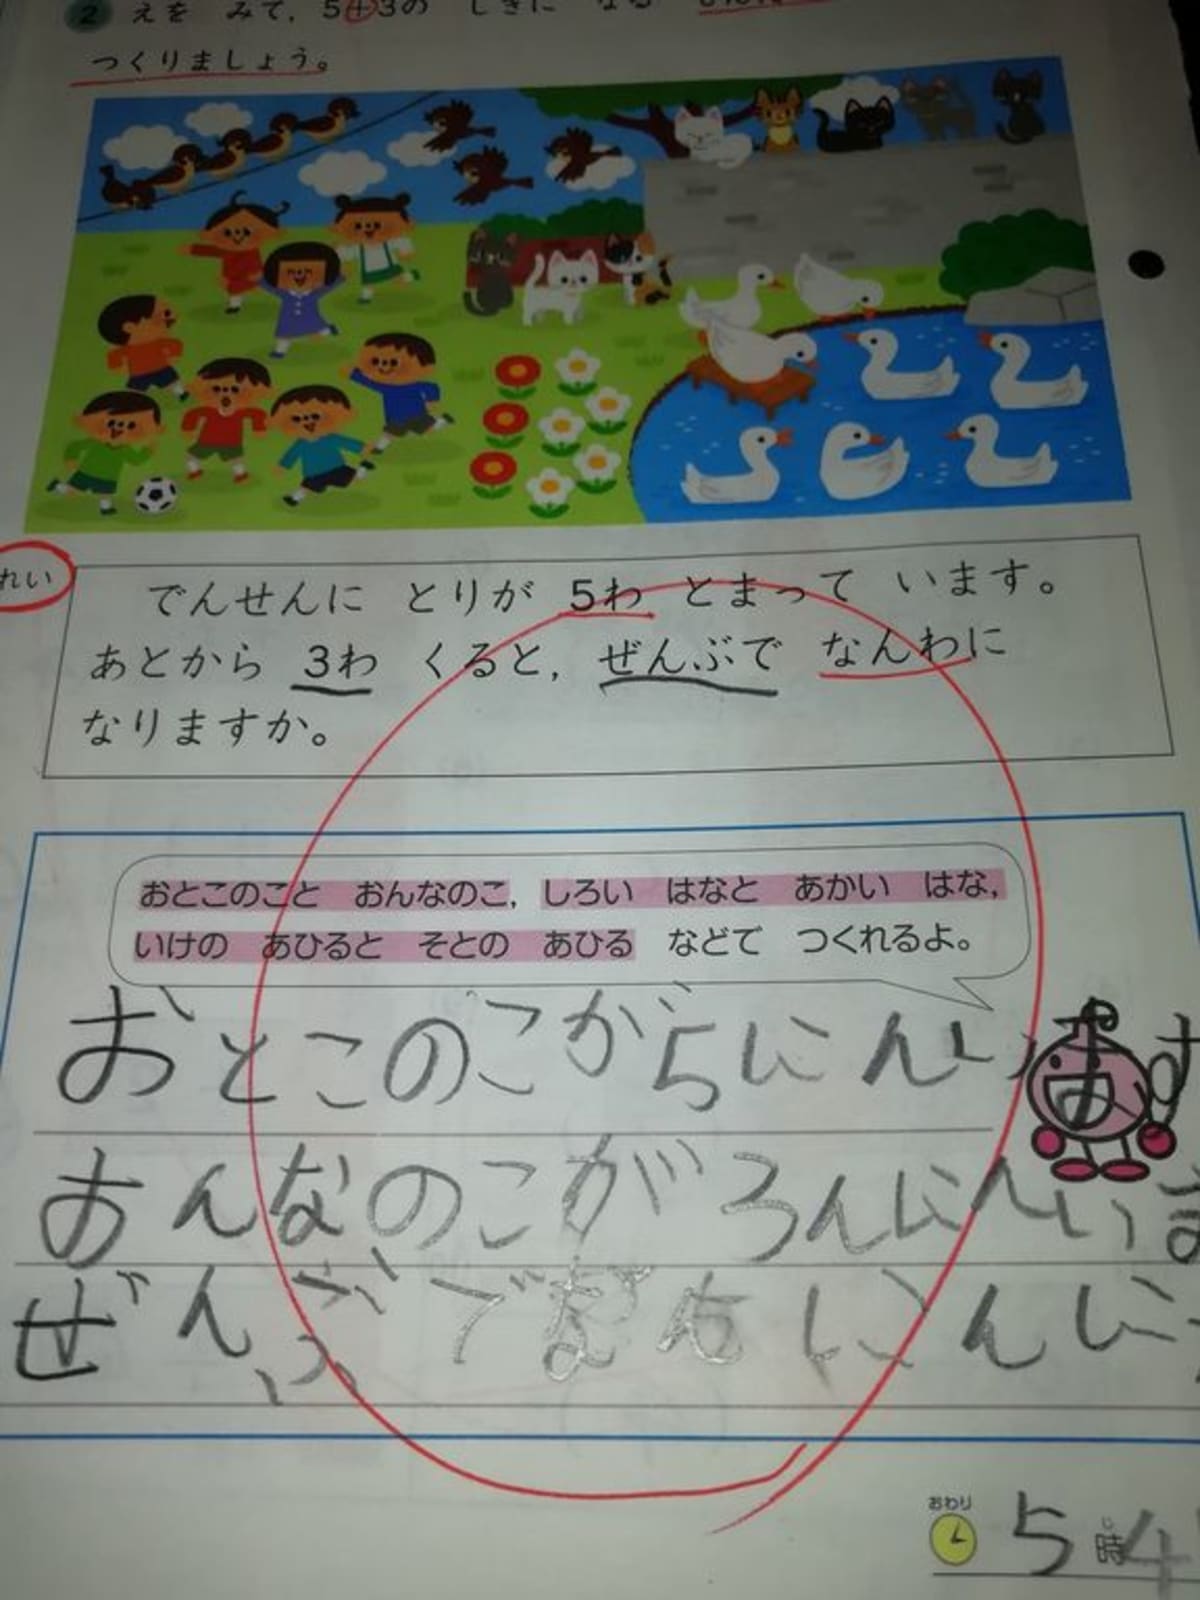 2 えを みて, 5+3の しきに なる
つくりましょう。
れい
でんせんに とりが 5わ とまって います。
あとから 3わ くると, ぜんぶで なんわに
なりますか。
おとこのこと おんなのこ, しろい はなと あかい はな,
いけの あひると そとの あひる などで つくれるよ。
おとこのこが5にんいます
おんなのこが3んにんいま
ぜんぶでなんにんに
おわり
5時4
じ